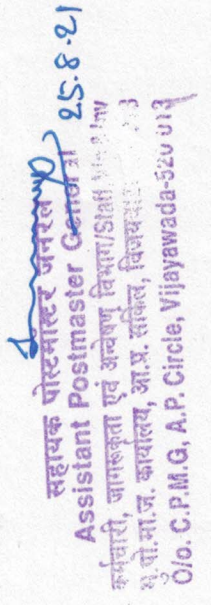 25.8.21
सहायक पोस्टमास्टर जनरल
Assistant Postmaster General
कर्मचारी, जागरूकता एवं अन्वेषण विभाग/Staff
मु.पो.मा.ज. कार्यालय, आ.प्र. सर्किल,
O/o. C.P.M.G, A.P. Circle, Vijayawada-520 013